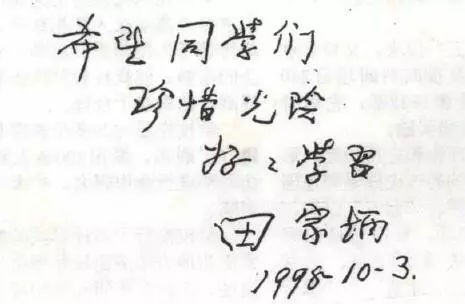 希望同学们
珍惜光阴
好好学习
田家炳
1998-10-3.